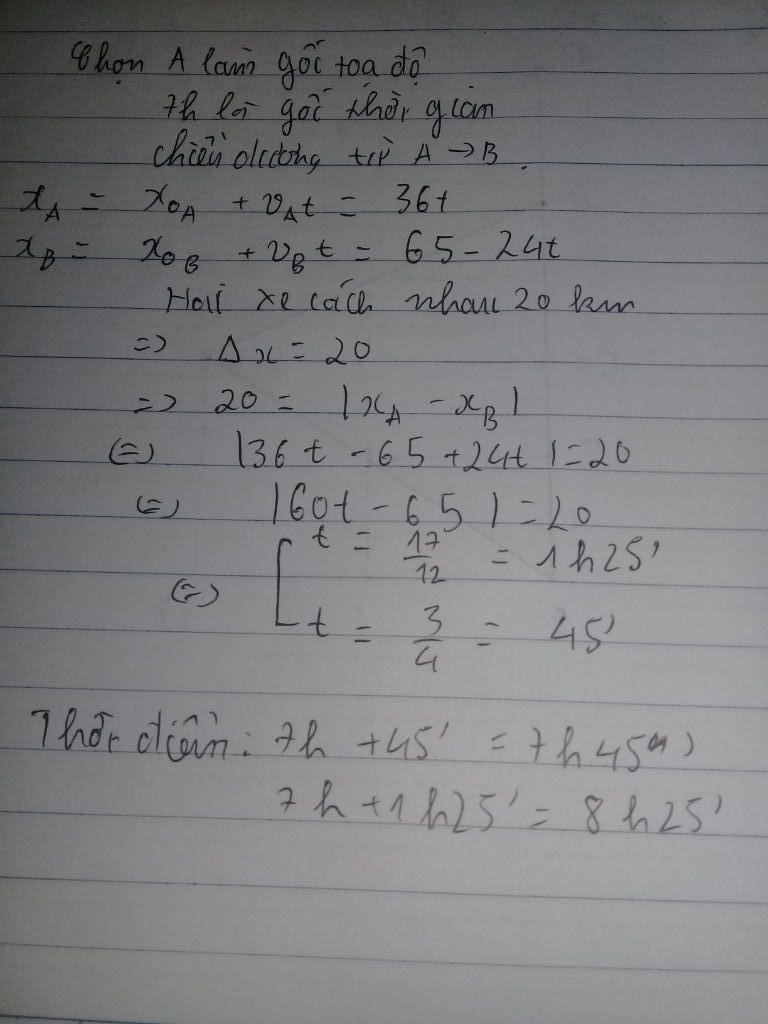 Chọn A làm gốc toạ độ
7h là gốc thời gian
chiều dương từ A → B.
x_A = x_{0A} + v_A t = 36t
x_B = x_{0B} + v_B t = 65 - 24t
Hai xe cách nhau 20 km
=> Δx = 20
=> 20 = |x_A - x_B|
(=) |36t - 65 + 24t| = 20
(=) |60t - 65| = 20
(=) [ t = 17/12 = 1h25'
t = 3/4 = 45'
Thời điểm: 7h + 45' = 7h45'
7h + 1h25' = 8h25'